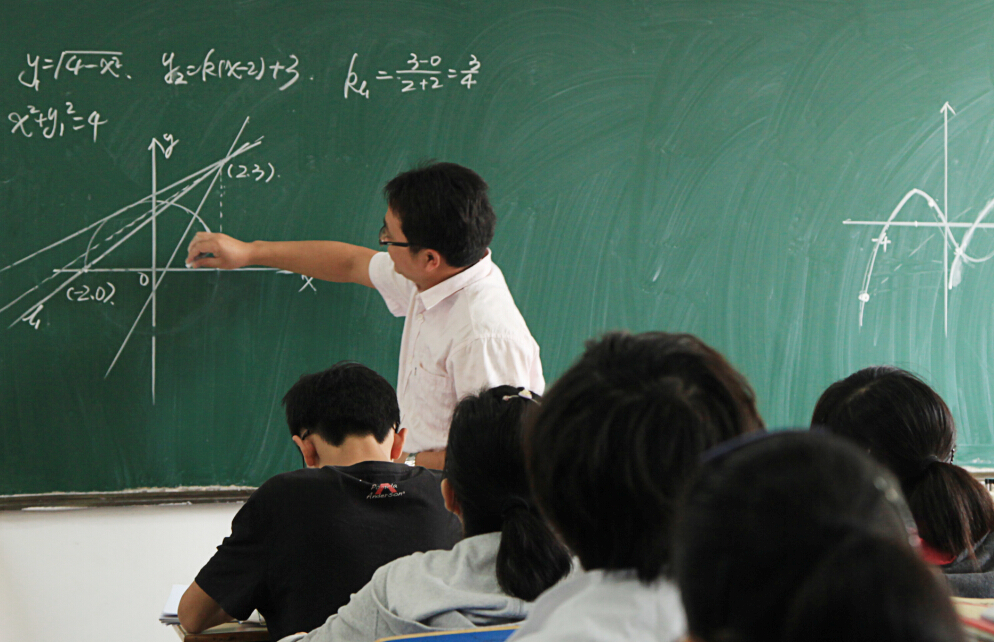 y₁=√(4-x²). y₂=k(x-2)+3. k₁=(3-0)/(2+2)=3/4
x²+y₁²=4
y
(2.3).
0
x
(-2.0)
l₁
4